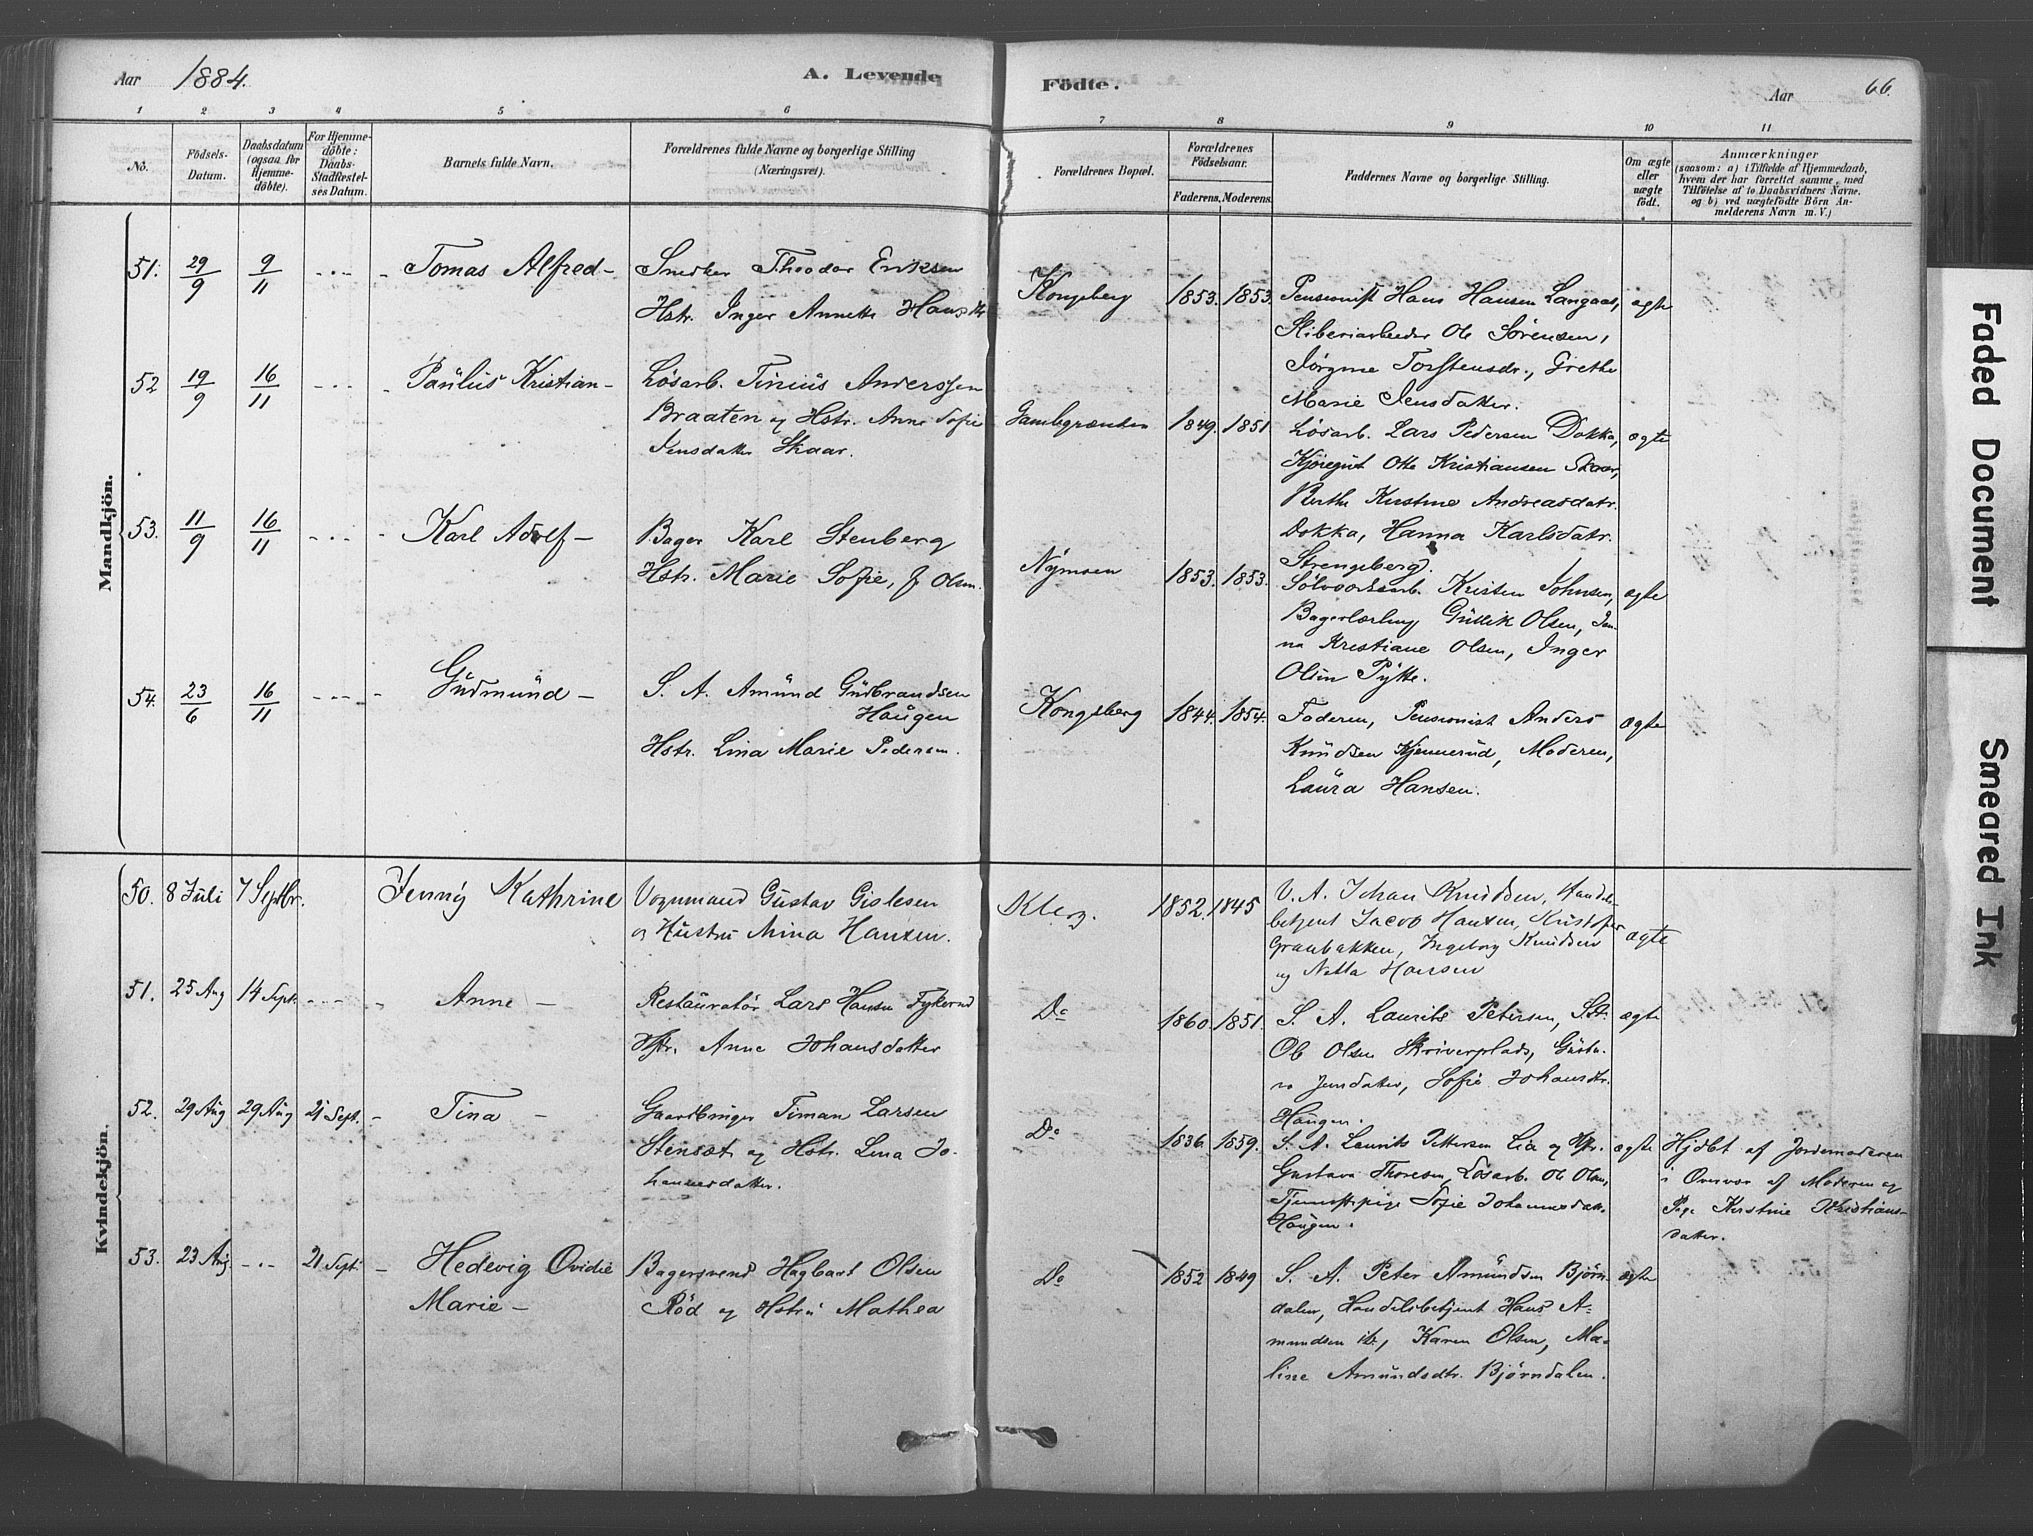 Aar 1884. A. Levende Födte. Aar 66.
1 2 3 4 5 6 7 8 9 10 11
No. Födsels-Datum. Daabsdatum (ogsaa for Hjemmedöbte). For Hjemmedöbte: Daabs-Stadfæstelses Datum. Barnets fulde Navn. Forældrenes fulde Navne og borgerlige Stilling (Næringsvei). Forældrenes Bopæl. Forældrenes Födselsaar. Faderens. Moderens. Faddernes Navne og borgerlige Stilling. Om ægte eller uægte födt. Anmærkninger (saasom: a) i Tilfælde af Hjemmedaab, hvem der har forrettet samme, med Tilföielse af to Daabsvidners Navne, og b) ved uægtefödte Börn Anmelderens Navn m. V.)
Mandkjön.
51. 29/9 9/11 Tomas Alfred – Snedker Theodor Eriksen
Hstr. Inger Annette Hansdtr
Kongsberg 1853. 1853. Pensionist Hans Hansen Langaas, ægte
Stiberiarbeider Ole Sörensen,
Jörgine Torstensdr., Grethe
Marie Jensdatter.
52 19/9 16/11 Paulus Kristian – Lösarb. Tinius Anderssen
Braaten og Hstr. Anne Sofie
Jensdatter Skaar.
Gamlegrænden 1849. 1851 Lösarb. Lars Pedersen Dokka, ægte
Kjöregut Otto Kristiansen Skaar,
Berthe Kirstine Andreasdatr.
Dokka, Hanna Karlsdatr.
Strengeberg.
53. 11/9 16/11 Karl Adolf – Bager Karl Stenberg
Hstr. Marie Sofie, f. Olsen.
Nymoen 1853. 1853. Sölvværksarb. Kristen Johnsen, ægte
Bagerlærling Gullik Olsen, Jen-
ne Kristiane Olsen, Inger
Olsen Pytte.
54. 23/6 16/11 Gudmund – S. A. Amund Gudbrandsen
Haugen
Hstr. Lina Marie Pedersen.
Kongsberg 1844. 1854. Faderen, Pensionist Anders ægte
Knudsen Kjennerud, Moderen,
Laura Hansen.
Kvindekjön.
50. 8 Juli 7 Septbr. Jenny Kathrine Vognmand Gustav Gislesen
og Hustru Mina Hansen.
Kberg. 1852. 1845 V. A. Johan Knudsen, Handels-
betjent Jacob Hansen, Kristofer
Granbakken, Ingeborg Knudsen ægte
og Netta Hansen
51. 25 Aug 14 Sept. Anne – Restauratör Lars Hansen Fykerud
Hstr. Anne Johansdatter
Do 1860. 1851. S. A. Laurits Petersen, ægte
Ole Olsen Skriverplads, Gusta-
va Jensdatter, Sofie Johansdtr.
Haugen.
52. 29 Aug 29 Aug 21 Sept. – Tina – Gaardbruger Timan Larsen
Stenset og Hstr. Lina Jo-
hannesdatter.
Do 1836. 1859. S. A. Laurits Pettersen Lia og Hstr. ægte
Gustava Thoresen, Lösarb. Ole Olsen,
Tjenestepige Sofie Johannesdatt.
Haugen.
Hjdbt af Jordemoderen
i Overvær af Moderen og
Pige Kirstine Kristians-
datter.
53. 23 Aug 21 Sept. – Hedevig Ovidie
Marie –
Bagersvend Hagbart Olsen
Röd og Hstru Mathea
Do 1852 1849 S. A. Peter Amundsen Björn- ægte
dalen, Handelsbetjent Hans A-
mundsen ib., Karen Olsen, Ma-
line Amundsdtr. Björndalen.
Faded Document
Smeared Ink